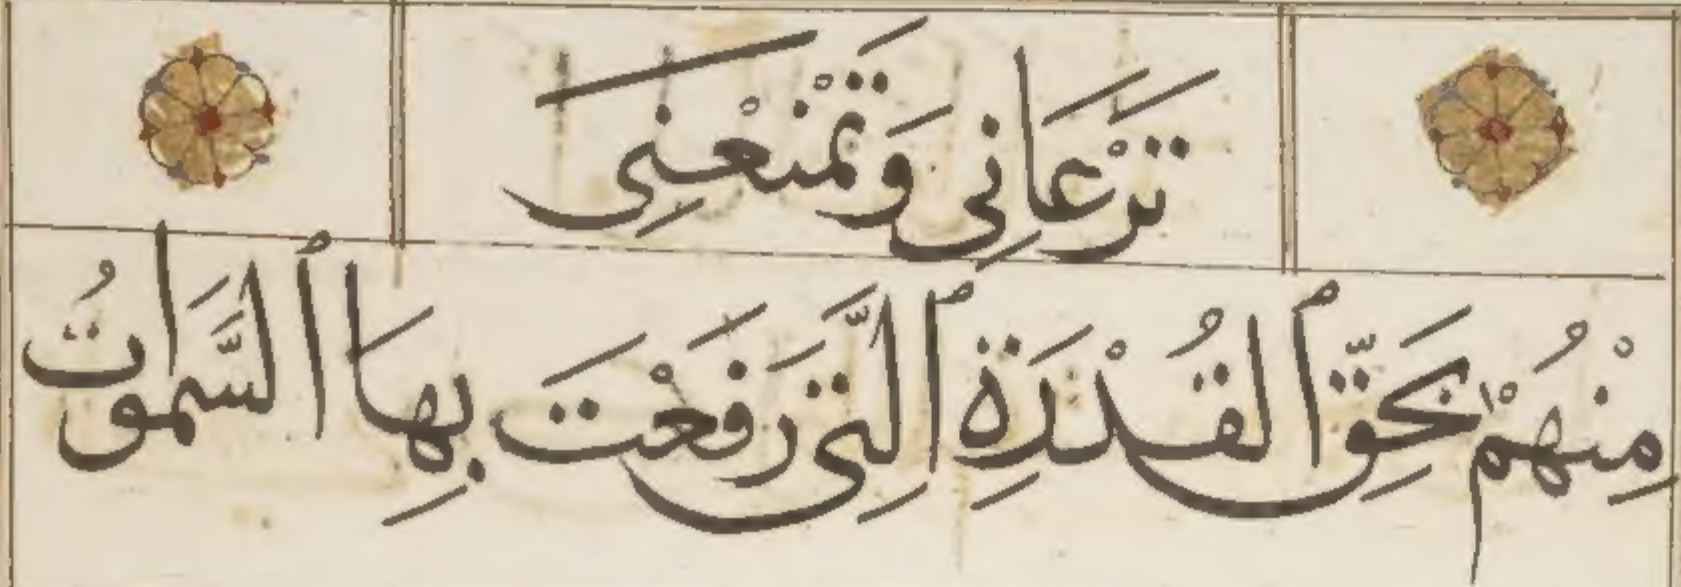 تَرْعَانِى وَتَمْنَعْنِى
مِنْهُمْ بِحَقِّ ٱلقُدْرَةِ ٱلَّتِى رَفَعْتَ بِهَا ٱلسَّمَوَاتُ